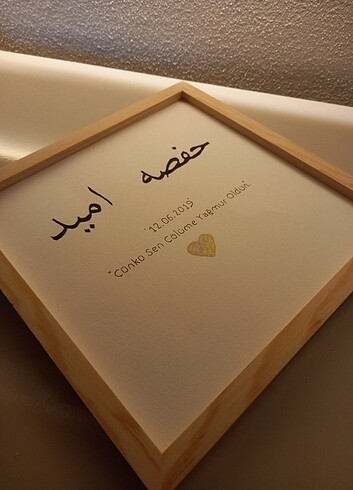 حفصه امید
"12.06.2019"
"Çünkü Sen Çölüme Yağmur Oldun"